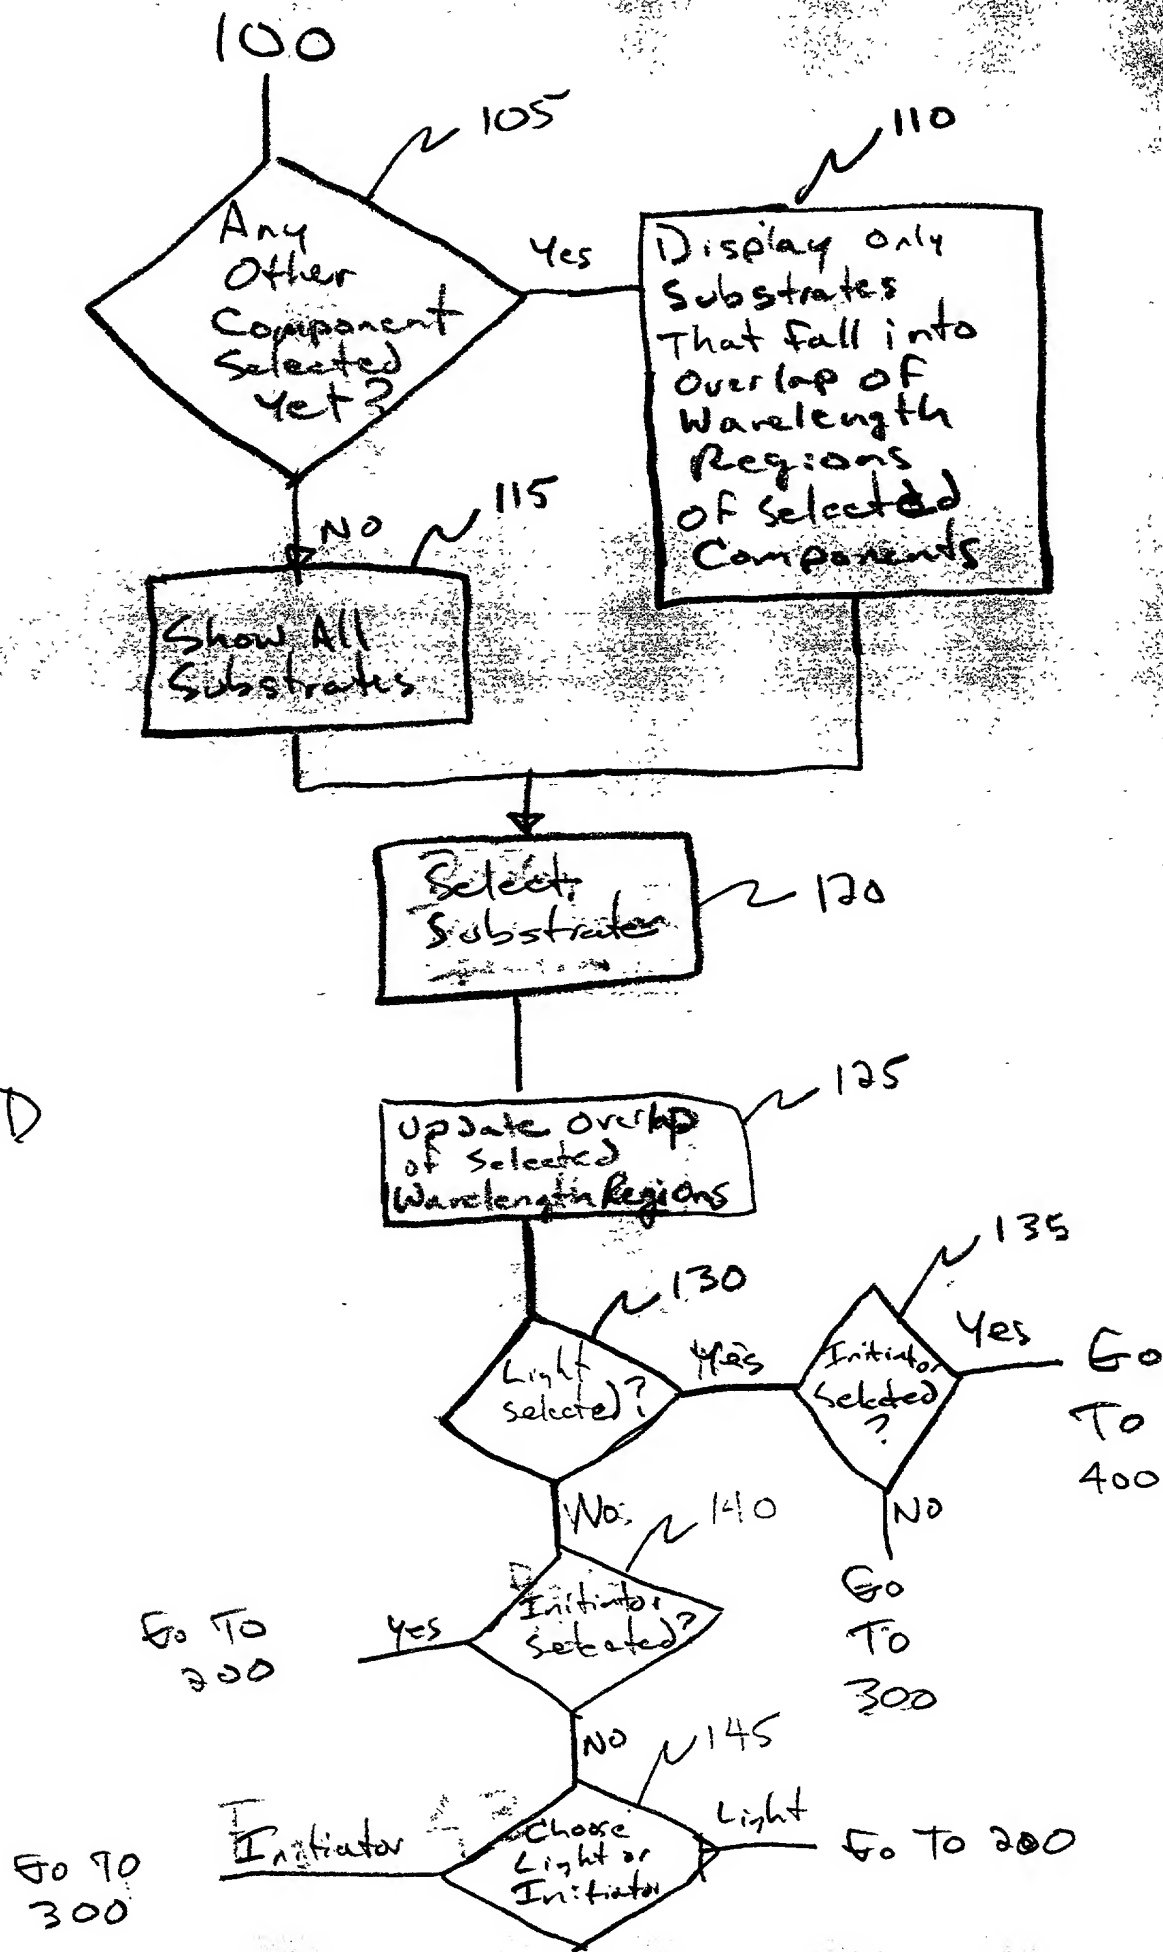 100
105
110
Any
Other
Component
Selected
Yet?
Yes
Display Only
Substrates
That fall into
Overlap of
Wavelength
Regions
of Selected
Components
NO
115
Show All
Substrates
Select
Substrates
120
D
125
Update Overlap
of Selected
Wavelength Regions
130
135
Light
Selected?
Yes
Initiator
Selected
?
Yes
Go
To
400
No
140
NO
Go
To
300
Initiator
Selected?
Yes
Go To
200
NO
145
Initiator
Choose
Light or
Initiator
Light
Go To 200
Go To
300